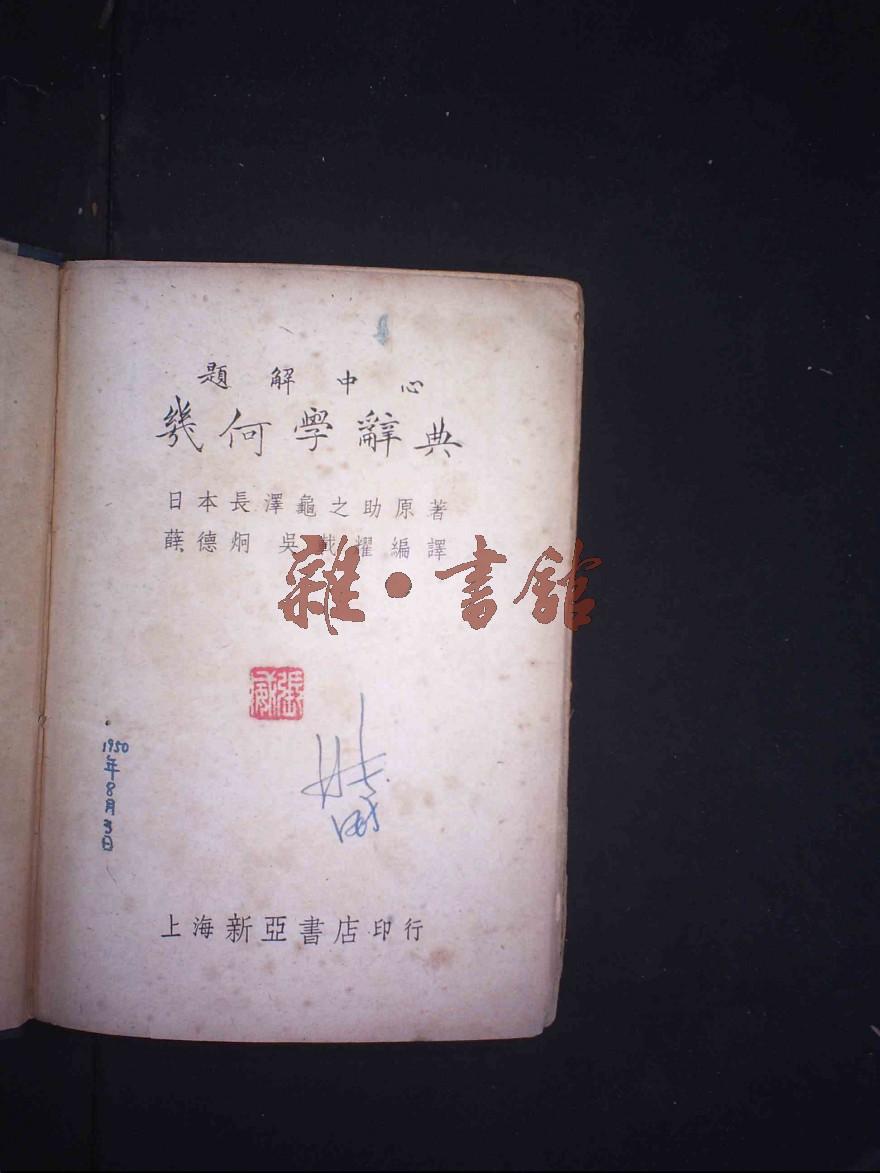 題解中心
幾何學辭典
日本長澤龜之助原著
薛德炯 吳載耀編譯
雜·書館
張威
1950年8月3日
上海新亞書店印行